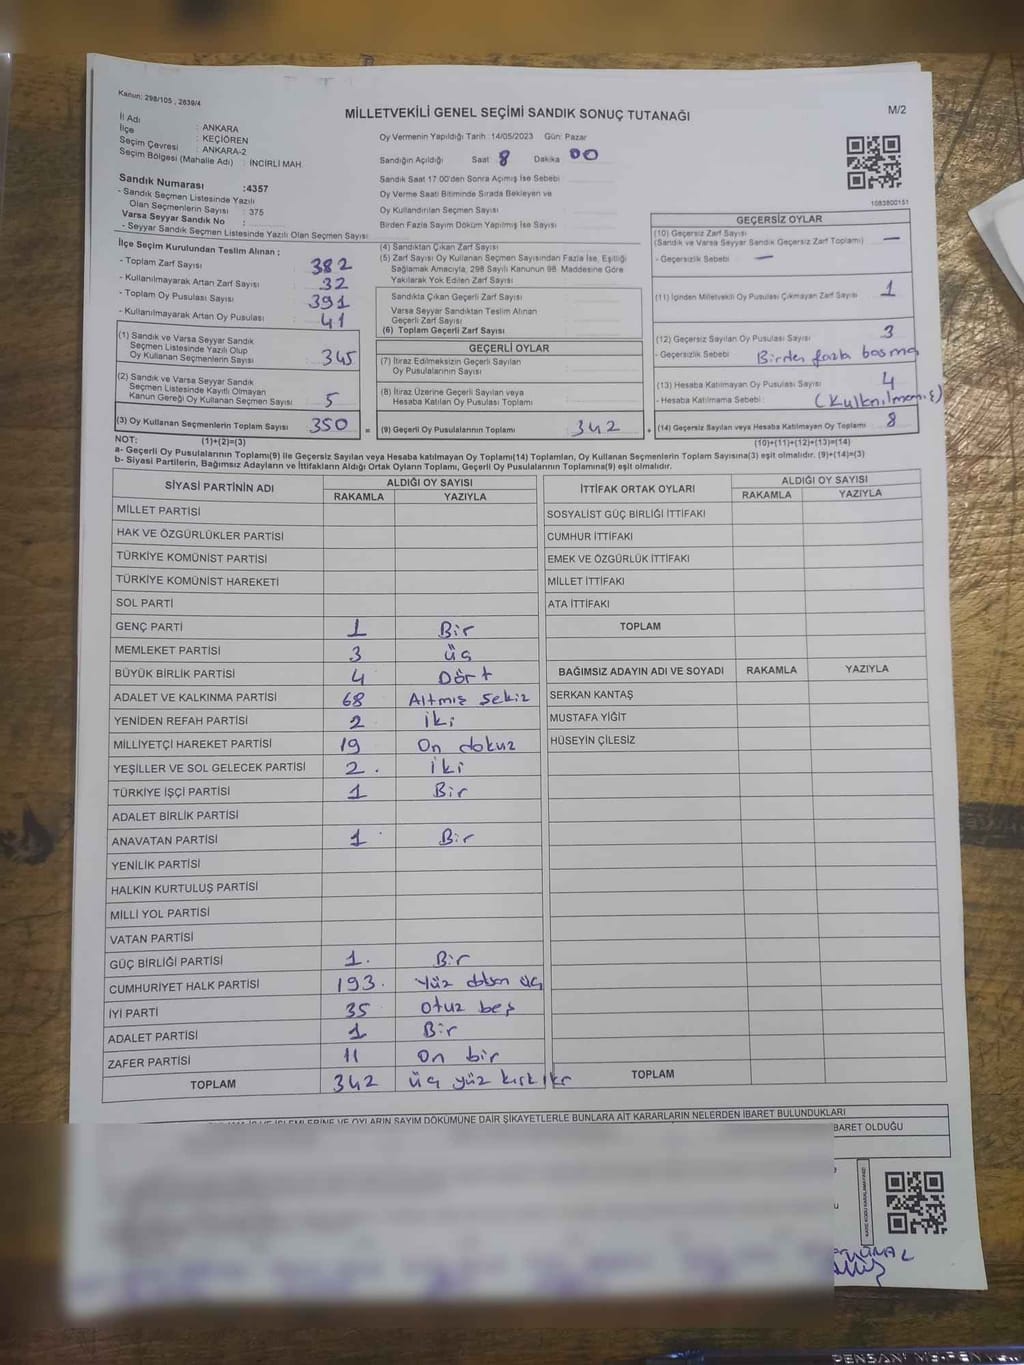 Kanun: 298/105, 2839/4
MİLLETVEKİLİ GENEL SEÇİMİ SANDIK SONUÇ TUTANAĞI
M/2
İl Adı : ANKARA
İlçe : KEÇİÖREN
Seçim Çevresi : ANKARA-2
Seçim Bölgesi (Mahalle Adı) : İNCİRLİ MAH.
Oy Vermenin Yapıldığı Tarih: 14/05/2023 Gün: Pazar
Sandığın Açıldığı Saat 8 Dakika 00
Sandık Saat 17.00'den Sonra Açımış İse Sebebi
Oy Verme Saati Bitiminde Sırada Bekleyen ve
Oy Kullandırılan Seçmen Sayısı
Birden Fazla Sayım Döküm Yapılmış İse Sayısı
1083800151
Sandık Numarası :4357
- Sandık Seçmen Listesinde Yazılı
Olan Seçmenlerin Sayısı : 375
Varsa Seyyar Sandık No :
- Seyyar Sandık Seçmen Listesinde Yazılı Olan Seçmen Sayısı
İlçe Seçim Kurulundan Teslim Alınan :
- Toplam Zarf Sayısı 382
- Kullanılmayarak Artan Zarf Sayısı 32
- Toplam Oy Pusulası Sayısı 391
- Kullanılmayarak Artan Oy Pusulası 41
(1) Sandık ve Varsa Seyyar Sandık
Seçmen Listesinde Yazılı Olup
Oy Kullanan Seçmenlerin Sayısı 345
(2) Sandık ve Varsa Seyyar Sandık
Seçmen Listesinde Kayıtlı Olmayan
Kanun Gereği Oy Kullanan Seçmen Sayısı 5
(3) Oy Kullanan Seçmenlerin Toplam Sayısı 350
(4) Sandıktan Çıkan Zarf Sayısı
(5) Zarf Sayısı Oy Kullanan Seçmen Sayısından Fazla İse, Eşitliği
Sağlamak Amacıyla, 298 Sayılı Kanunun 98. Maddesine Göre
Yakılarak Yok Edilen Zarf Sayısı
Sandıkta Çıkan Geçerli Zarf Sayısı
Varsa Seyyar Sandıktan Teslim Alınan
Geçerli Zarf Sayısı
(6) Toplam Geçerli Zarf Sayısı
GEÇERLİ OYLAR
(7) İtiraz Edilmeksizin Geçerli Sayılan
Oy Pusulalarının Sayısı
(8) İtiraz Üzerine Geçerli Sayılan veya
Hesaba Katılan Oy Pusulası Toplamı
= (9) Geçerli Oy Pusulalarının Toplamı 342 +
GEÇERSİZ OYLAR
(10) Geçersiz Zarf Sayısı
(Sandık ve Varsa Seyyar Sandık Geçersiz Zarf Toplamı) —
- Geçersizlik Sebebi —
(11) İçinden Milletvekili Oy Pusulası Çıkmayan Zarf Sayısı 1
(12) Geçersiz Sayılan Oy Pusulası Sayısı 3
- Geçersizlik Sebebi Birden fazla basma
(13) Hesaba Katılmayan Oy Pusulası Sayısı 4
- Hesaba Katılmama Sebebi :
(14) Geçersiz Sayılan veya Hesaba Katılmayan Oy Toplamı 8
NOT: (1)+(2)=(3)
(10)+(11)+(12)+(13)=(14)
a- Geçerli Oy Pusulalarının Toplamı(9) ile Geçersiz Sayılan veya Hesaba katılmayan Oy Toplamı(14) Toplamları, Oy Kullanan Seçmenlerin Toplam Sayısına(3) eşit olmalıdır. (9)+(14)=(3)
b- Siyasi Partilerin, Bağımsız Adayların ve İttifakların Aldığı Ortak Oyların Toplamı, Geçerli Oy Pusulalarının Toplamına(9) eşit olmalıdır.
SİYASİ PARTİNİN ADI ALDIĞI OY SAYISI
RAKAMLA YAZIYLA
MİLLET PARTİSİ
HAK VE ÖZGÜRLÜKLER PARTİSİ
TÜRKİYE KOMÜNİST PARTİSİ
TÜRKİYE KOMÜNİST HAREKETİ
SOL PARTİ
GENÇ PARTİ 1 Bir
MEMLEKET PARTİSİ 3 üç
BÜYÜK BİRLİK PARTİSİ 4 Dört
ADALET VE KALKINMA PARTİSİ 68 Altmış Sekiz
YENİDEN REFAH PARTİSİ 2 iki
MİLLİYETÇİ HAREKET PARTİSİ 19 On dokuz
YEŞİLLER VE SOL GELECEK PARTİSİ 2 iki
TÜRKİYE İŞÇİ PARTİSİ 1 Bir
ADALET BİRLİK PARTİSİ
ANAVATAN PARTİSİ 1 Bir
YENİLİK PARTİSİ
HALKIN KURTULUŞ PARTİSİ
MİLLİ YOL PARTİSİ
VATAN PARTİSİ
GÜÇ BİRLİĞİ PARTİSİ 1 Bir
CUMHURİYET HALK PARTİSİ 193 Yüz doksan üç
İYİ PARTİ 35 Otuz beş
ADALET PARTİSİ 1 Bir
ZAFER PARTİSİ 11 On bir
TOPLAM 342 üç yüz kırk iki
İTTİFAK ORTAK OYLARI ALDIĞI OY SAYISI
RAKAMLA YAZIYLA
SOSYALİST GÜÇ BİRLİĞİ İTTİFAKI
CUMHUR İTTİFAKI
EMEK VE ÖZGÜRLÜK İTTİFAKI
MİLLET İTTİFAKI
ATA İTTİFAKI
TOPLAM
BAĞIMSIZ ADAYIN ADI VE SOYADI RAKAMLA YAZIYLA
SERKAN KANTAŞ
MUSTAFA YİĞİT
HÜSEYİN ÇİLESİZ
TOPLAM
İŞLEMLERİNE VE OYLARIN SAYIM DÖKÜMÜNE DAİR ŞİKAYETLERLE BUNLARA AİT KARARLARIN NELERDEN İBARET BULUNDUKLARI
BARET OLDUĞU